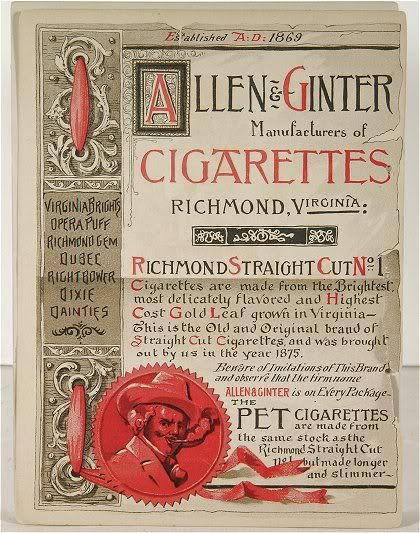 Established A:D: 1869
ALLEN & GINTER
Manufacturers of
CIGARETTES
RICHMOND, VIRGINIA:
VIRGINIA BRIGHTS
OPERA PUFF
RICHMOND GEM
DUBEC
RIGHT BOWER
DIXIE
DAINTIES
RICHMOND STRAIGHT CUT No. 1
Cigarettes are made from the Brightest,
most delicately flavored and Highest
Cost Gold Leaf grown in Virginia—
This is the Old and Original brand of
Straight Cut Cigarettes, and was brought
out by us in the year 1875.
Beware of Imitations of This Brand
and observe that the firm name
ALLEN & GINTER is on Every Package—
THE
PET CIGARETTES
are made from
the same stock as the
Richmond Straight Cut
No 1, but made longer
and slimmer—